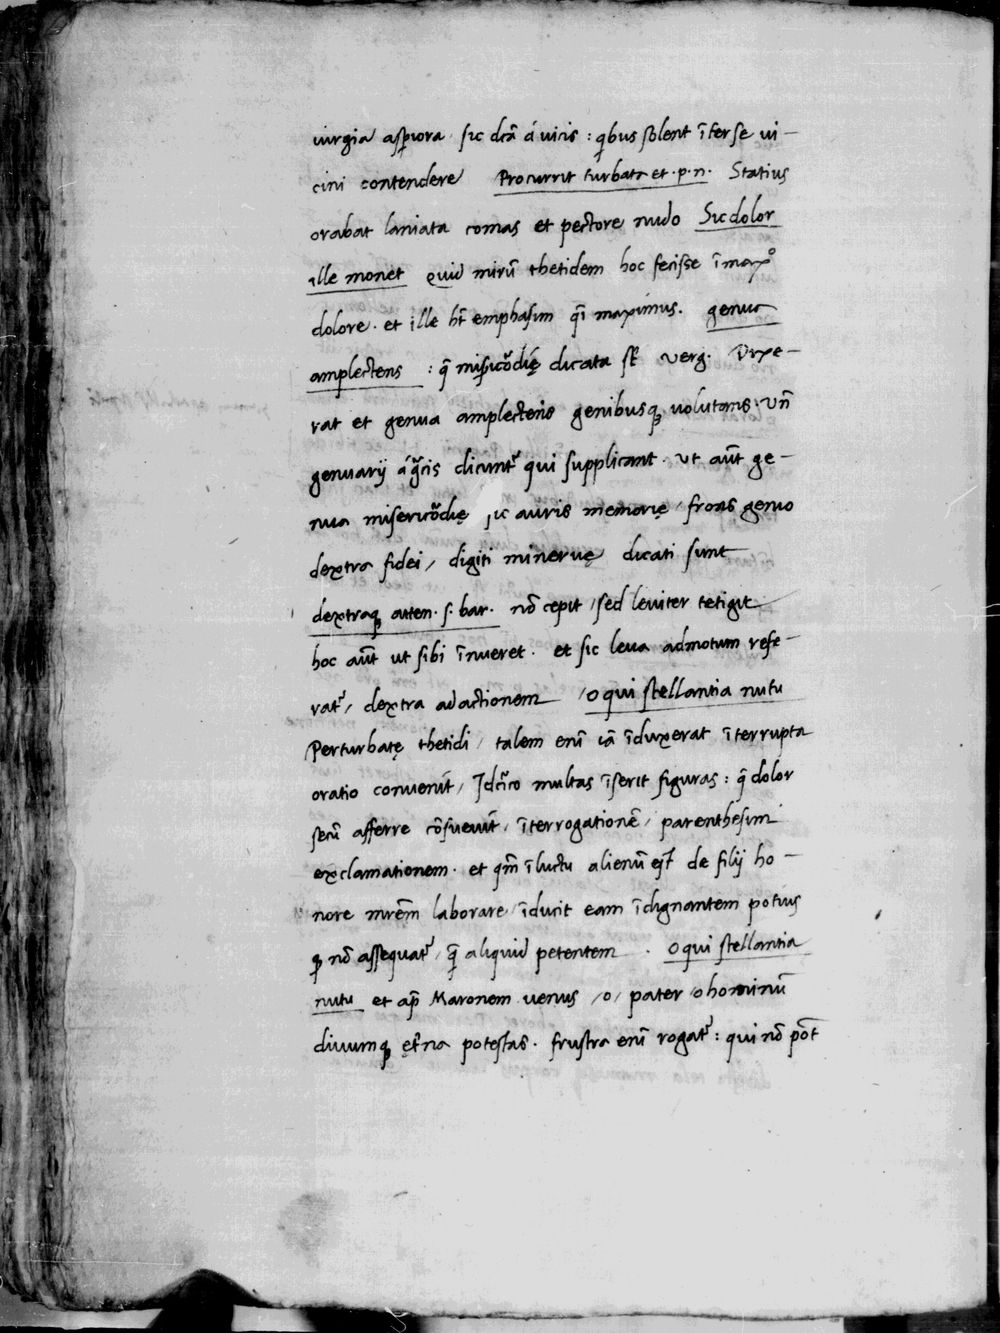 iurgia asp̄iora sic dc̄ā á uicis : qibus solent ī̄terse ui-
cini contendere Procurrit turbata et . p . n . Statius
orabat laniata comas et pectore nudo Sic dolor
ille monet quid mirū thetidem hoc fecisse ī maxº
dolore . et ille ht̄ emphasim qī maximus . genua
amplectens : q̄ misicōdię dicata st̄ verg . Dixe-
rat et genua amplectens genibusqꝫ uolutans : Vn̄
genuarij á gͣcis dicuntᷣ qui supplicant . ut aut̄ ge-
nua misericōdię sic auris memorię / frons genio
dextra fidei / digiti mineruę dicati sunt
dextraqꝫ aten . s . bar . nō cepit / sed leuiter tetigit
hoc aut̄ ut sibi īnueret . et sic leua admotum refe-
ratᷣ / dextra ad actionem / O qui stellantia nutu
Perturbatę thetidi / talem enī iā īduxerat īterrupta
oratio conuenit̄ / Jdcͥrco multas īserit figuras : q̄ dolor
secū afferre cōsueuit̄ / īterrogationē / parenthesim
exclamationem . et qm̄ ī luctu alienū est de filij ho-
nore mr̄em laborare / īducit eam īdignantem potius
qꝫ nō assequatᷣ / q̄ aliquid petentem . O qui stellantia
nutu et ap̄ Maronem uenus / o / pater / o hominū
diuumqꝫ ęt̄na potestas . frustra enī rogatᷣ : qui nō pōt